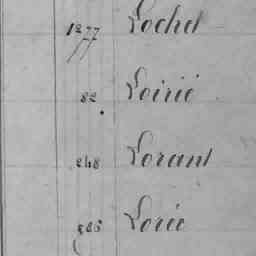 1277 Lochet
82. Loirié
248 Lorant
586 Lorée